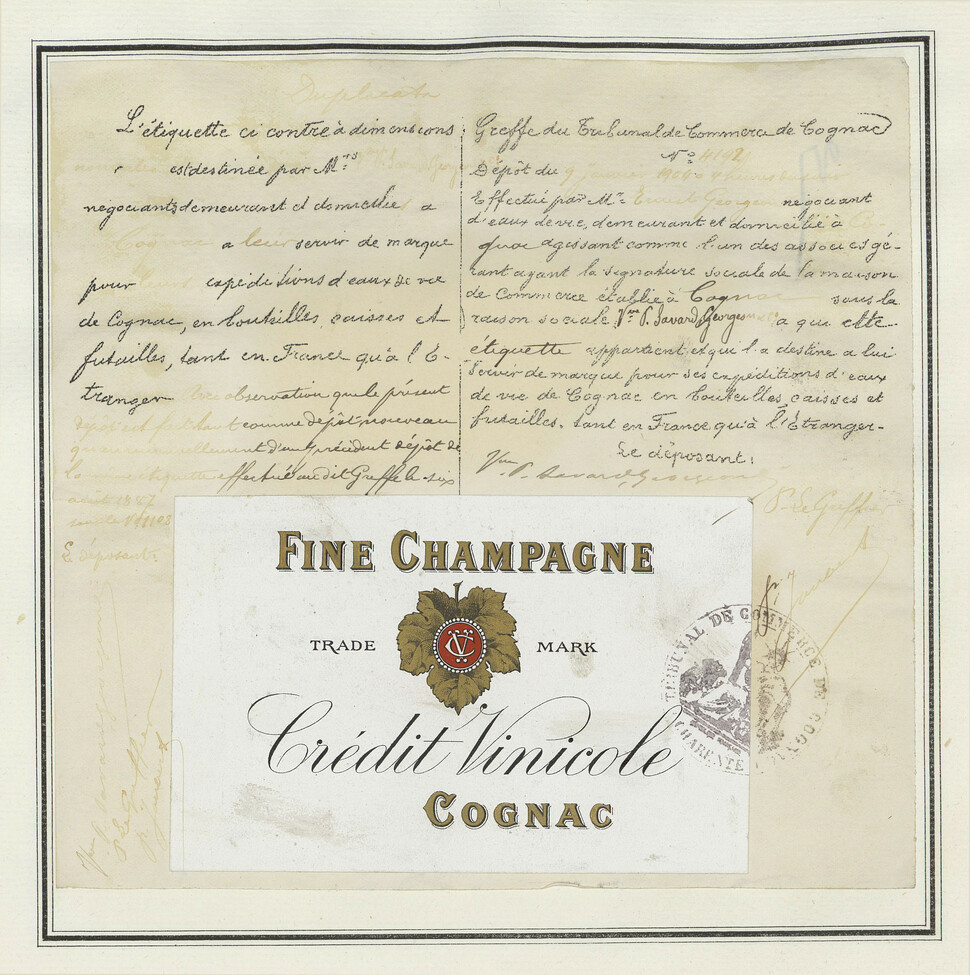 Duplicata
L'étiquette ci contre à dimensions
est destinée par M.rs
négociants demeurant et domiciliés a
Cognac a leur servir de marque
pour leurs expéditions d'eaux de vie
de Cognac, en bouteilles, caisses et
futailles, tant en France qu'à l'É-
tranger Avec observation que le présent
dépôt est fait tant comme dépôt nouveau
qu'en renouvellement d'un précédent dépôt de
la même étiquette effectué au dit Greffe le six
août 1887
Le déposant.
Greffe du Tribunal de Commerce de Cognac
N.o
Dépôt du 9 janvier 1904
Effectué par M.r Ernest Georgeon négociant
d'eaux de vie, demeurant et domicilié à
quoc agissant comme l'un des associés gé-
rant ayant la signature sociale de la maison
de Commerce établie à Cognac sous la
raison sociale Vve P. Savard, Georgeon a qui cette
étiquette appartient, et qui l'a destine a lui
servir de marque pour ses expéditions d'eaux
de vie de Cognac en bouteilles, caisses et
futailles, tant en France qu'à l'Étranger-
Le déposant:
Vve P. Savard, Georgeon
P. Le Greffier
FINE CHAMPAGNE
TRADE MARK
CV
Crédit Vinicole
COGNAC
TRIBUNAL DE COMMERCE DE COGNAC
CHARENTE